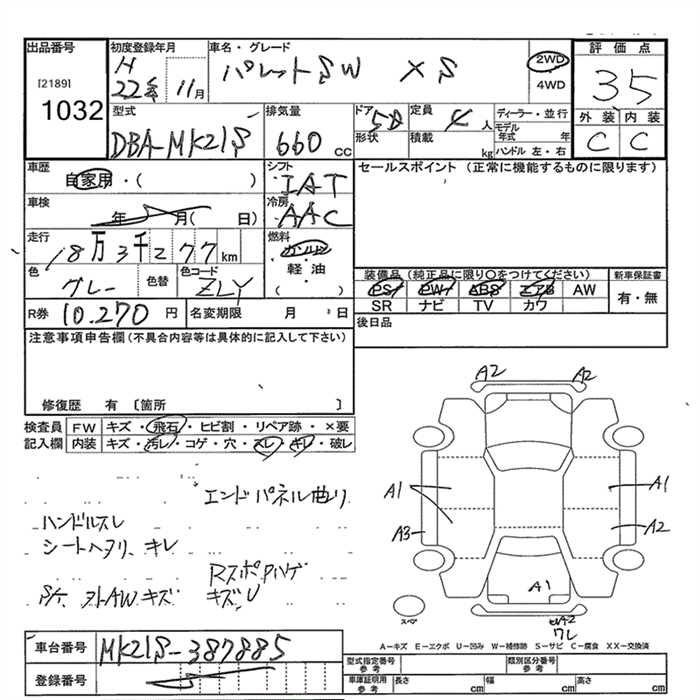 出品番号
[2189]
1032
初度登録年月
H
22年 11月
車名・グレード
パレットSW XS
2WD
・
4WD
評価点
35
外装 内装
C C
型式
DBA-MK21S
排気量
660 cc
ドア 5D
形状
定員 4 人
積載 kg
ディーラー・並行
モデル年式 年
ハンドル 左・右
車歴
自家用・( )
車検
年 月( 日)
シフト
IAT
冷房
AAC
セールスポイント (正常に機能するものに限ります)
走行
18万3千277km
燃料
ガソリン
・
軽油
( )
色
グレー
色替
色コード
ZLY
装備品(純正品に限り○をつけてください)
PS PW ABS エアB AW
SR ナビ TV カワ
新車保証書
有・無
R券 10,270 円
名変期限 月 日
後日品
注意事項申告欄(不具合内容等は具体的に記入して下さい)
修復歴 有〔箇所 〕
検査員 FW キズ・飛石・ヒビ割・リペア跡・×要
記入欄 内装 キズ・汚レ・コゲ・穴・スレ・キレ・破レ
エンドパネル曲り
ハンドルスレ
シートヘタリ、キレ
Rスポハゲ
キズU
外AWキズ
A2 A2
A1 A1
A3 A2
A1
スペア
A2
ワレ
A-キズ E-エクボ U-凹み W-補修跡 S-サビ C-腐食 XX-交換済
車台番号 MK21S-387885
登録番号
型式指定番号
参考
類別区分番号
参考
車庫証明用
参考
長さ cm 幅 cm 高さ cm